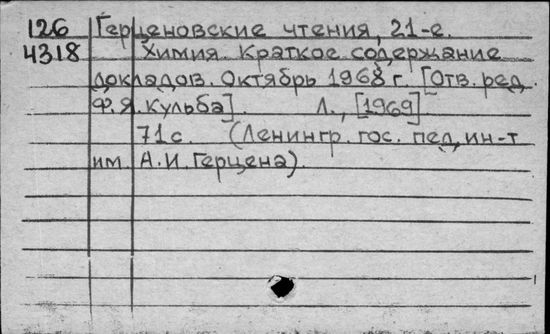 126 Герценовские чтения, 21-е.
4318 Химия. Краткое содержание
докладов. Октябрь 1968 г. [Отв. ред.
Ф.Я. Кульба]. Л., [1969]
71 с. (Ленингр. гос. пед. ин-т
им. А.И. Герцена).